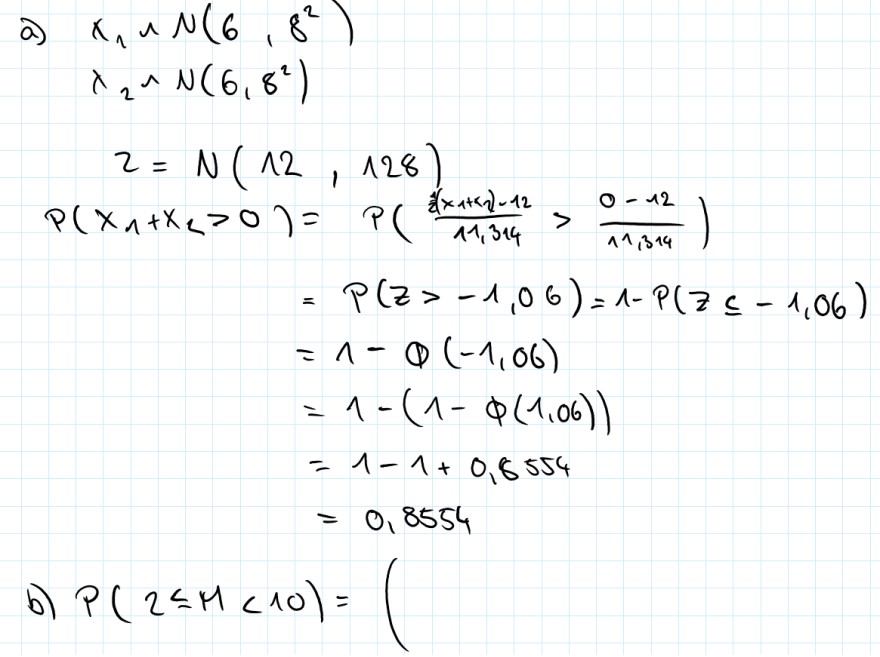 a) X₁ ~ N(6 , 8²)
X₂ ~ N(6, 8²)
Z = N(12 , 128)
P(X₁+X₂>0) = P( (X₁+X₂)-12 / 11,314 > 0-12 / 11,314 )
= P(Z > -1,06) = 1- P(Z ≤ -1,06)
= 1 - Φ(-1,06)
= 1 - (1- Φ(1,06))
= 1 - 1 + 0,8554
= 0,8554
b) P( 2 ≤ M < 10) = (